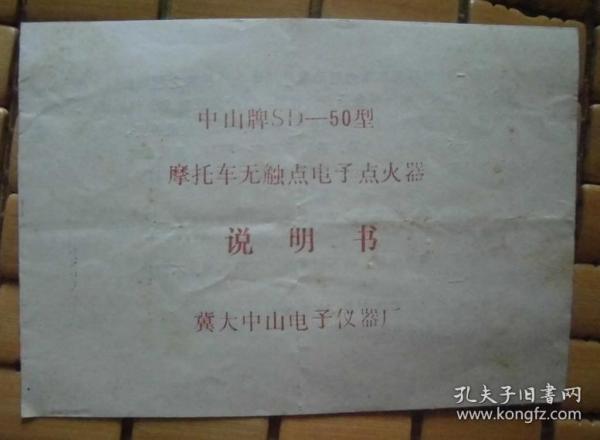 中山牌SD—50型
摩托车无触点电子点火器
说明书
冀大中山电子仪器厂
孔夫子旧书网
www.kongfz.com